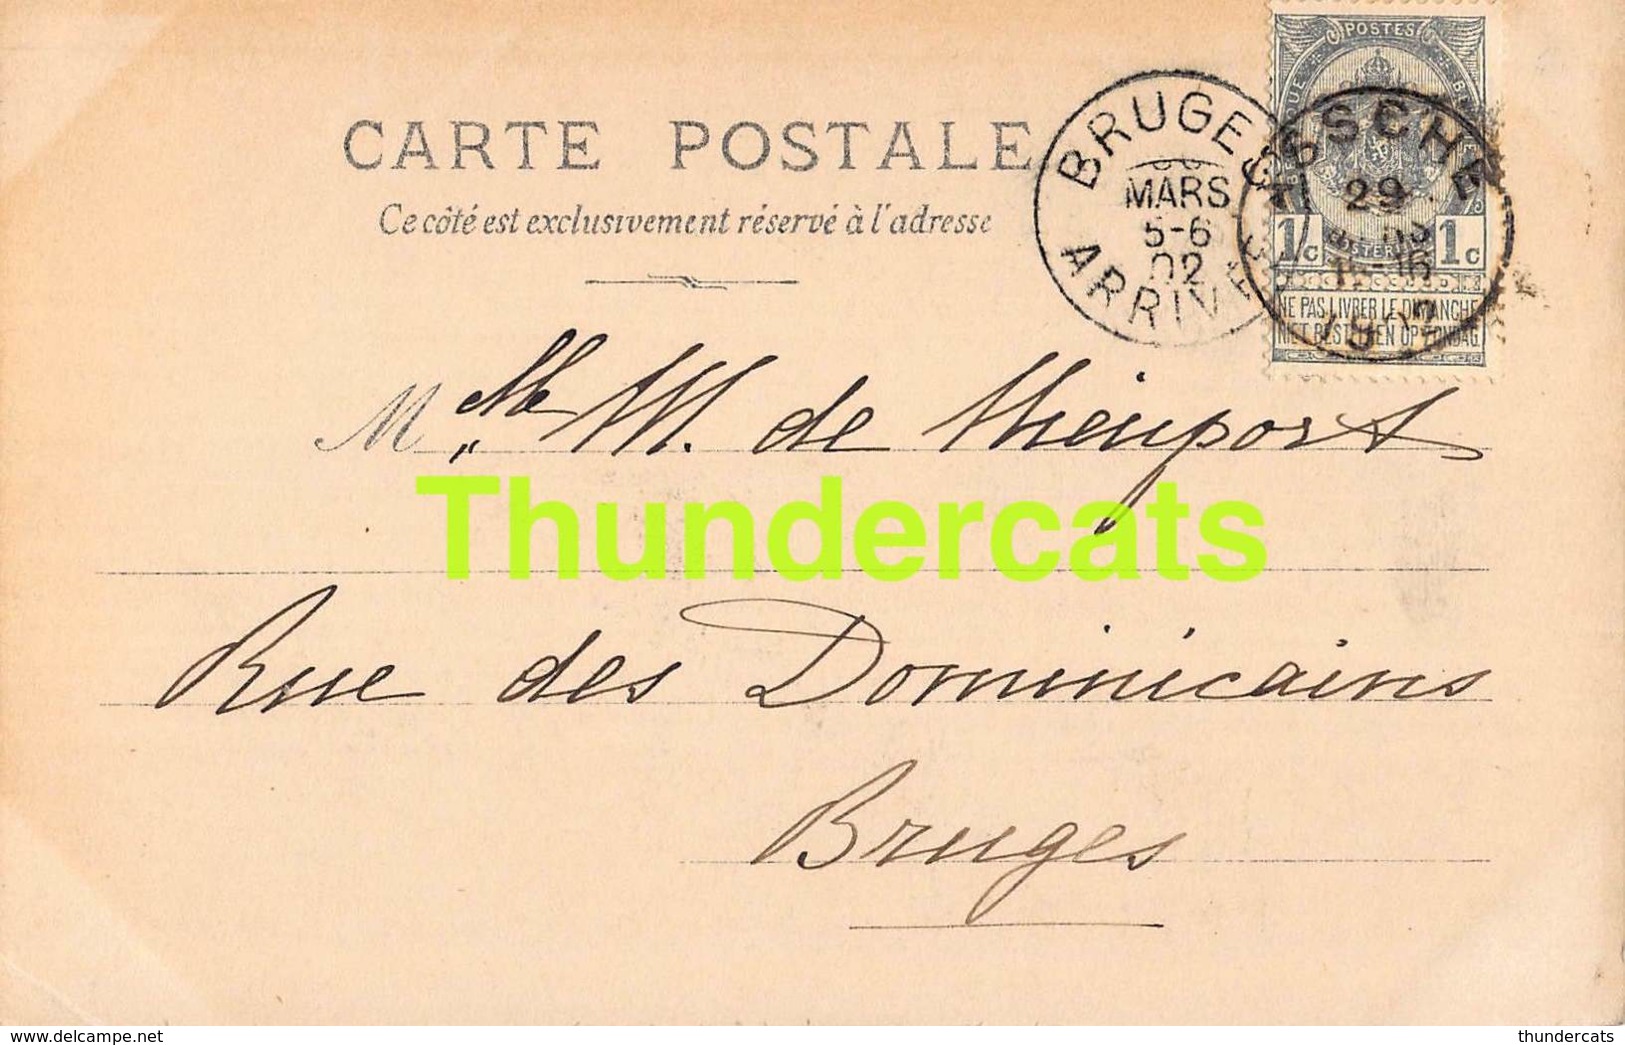 POSTES
CARTE POSTALE
Ce côté est exclusivement réservé à l'adresse
BRUGES
MARS
5-6
02
ARRIVÉE
SSCHE
29
1c 1c
NE PAS LIVRER LE DIMANCHE
NIET BESTELLEN OP ZONDAG
M elle M. de Nieuport
Thundercats
Rue des Dominicains
Bruges
https://www.delcampe.net
thundercats